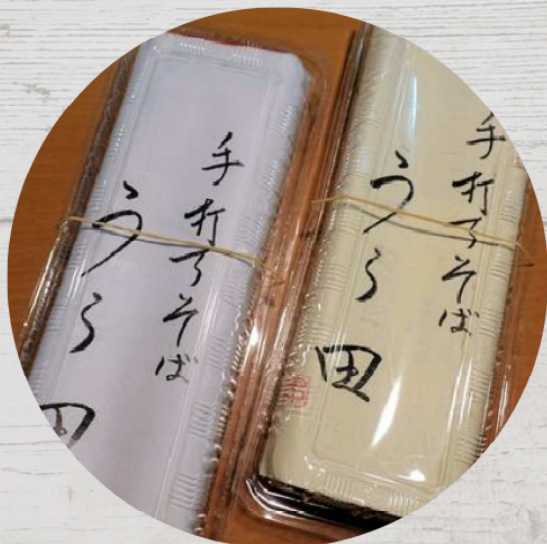 手打ちそば
うら田
手打ちそば
うら田